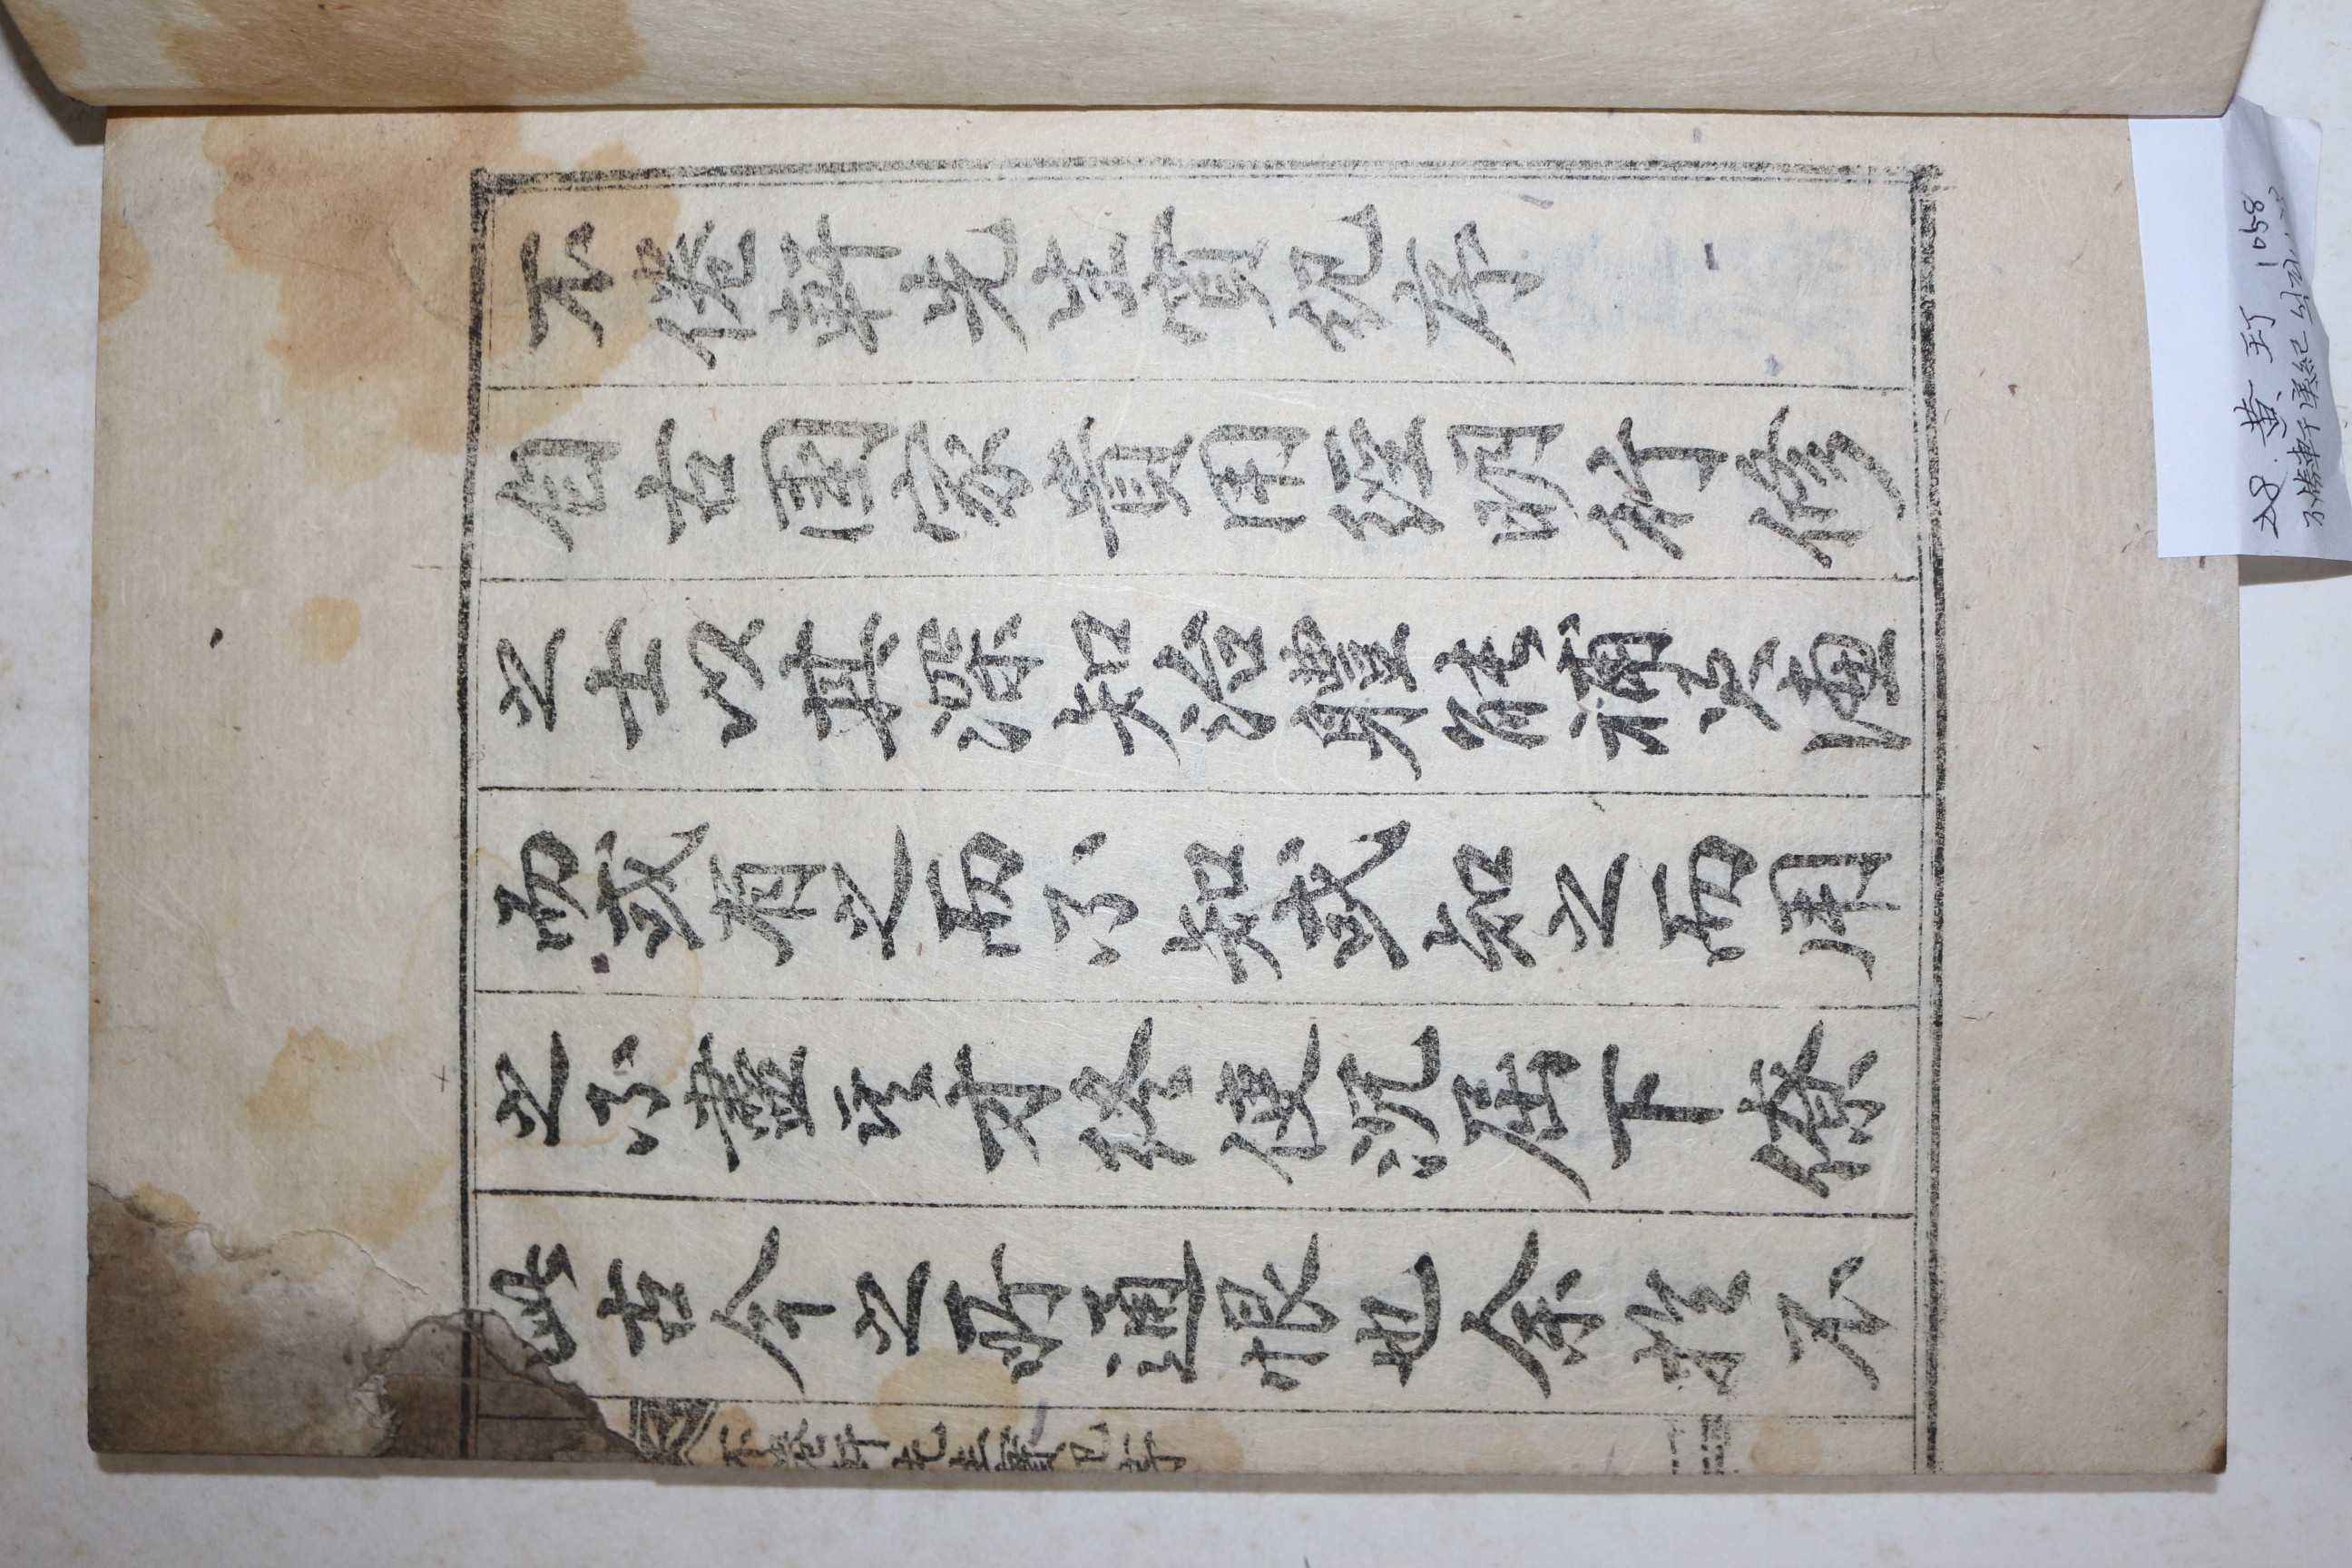 不倦軒先生實紀序
自古國家貴用經明行修
之士以其深知治軆能補笑德
而或有之而不知或知之而用
之不盡其才終使沉屈下僚
此古今之所通恨也余於不
不倦軒先生實紀序
28. 黄玎 1058
不勝軒實紀